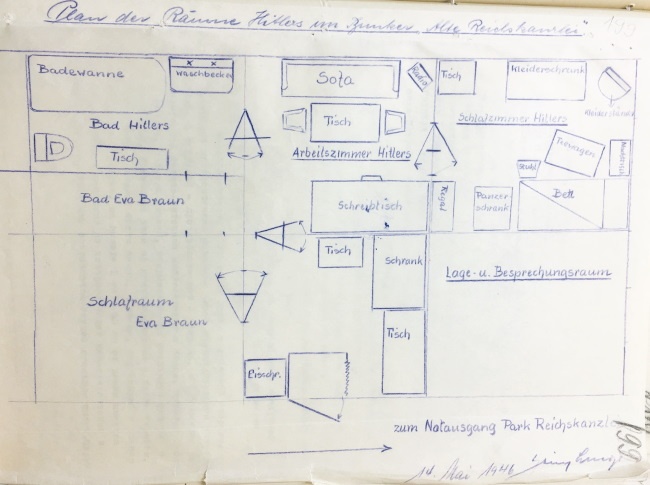 Plan der Räume Hitlers im Bunker Alte Reichskanzlei
149
Badewanne
Waschbecken
Sofa
Radio
Tisch
Kleiderschrank
Kleiderständer
Bad Hitlers
Tisch
Tisch
Arbeitszimmer Hitlers
Schlafzimmer Hitlers
Stuhl
Teewagen
Nachttisch
Bad Eva Braun
Schreibtisch
Regal
Panzer
schrank
Bett
Tisch
Schrank
Lage- u. Besprechungsraum
Schlafraum
Eva Braun
Tisch
Eisschr.
zum Notausgang Park Reichskanzlei
14. Mai 1946